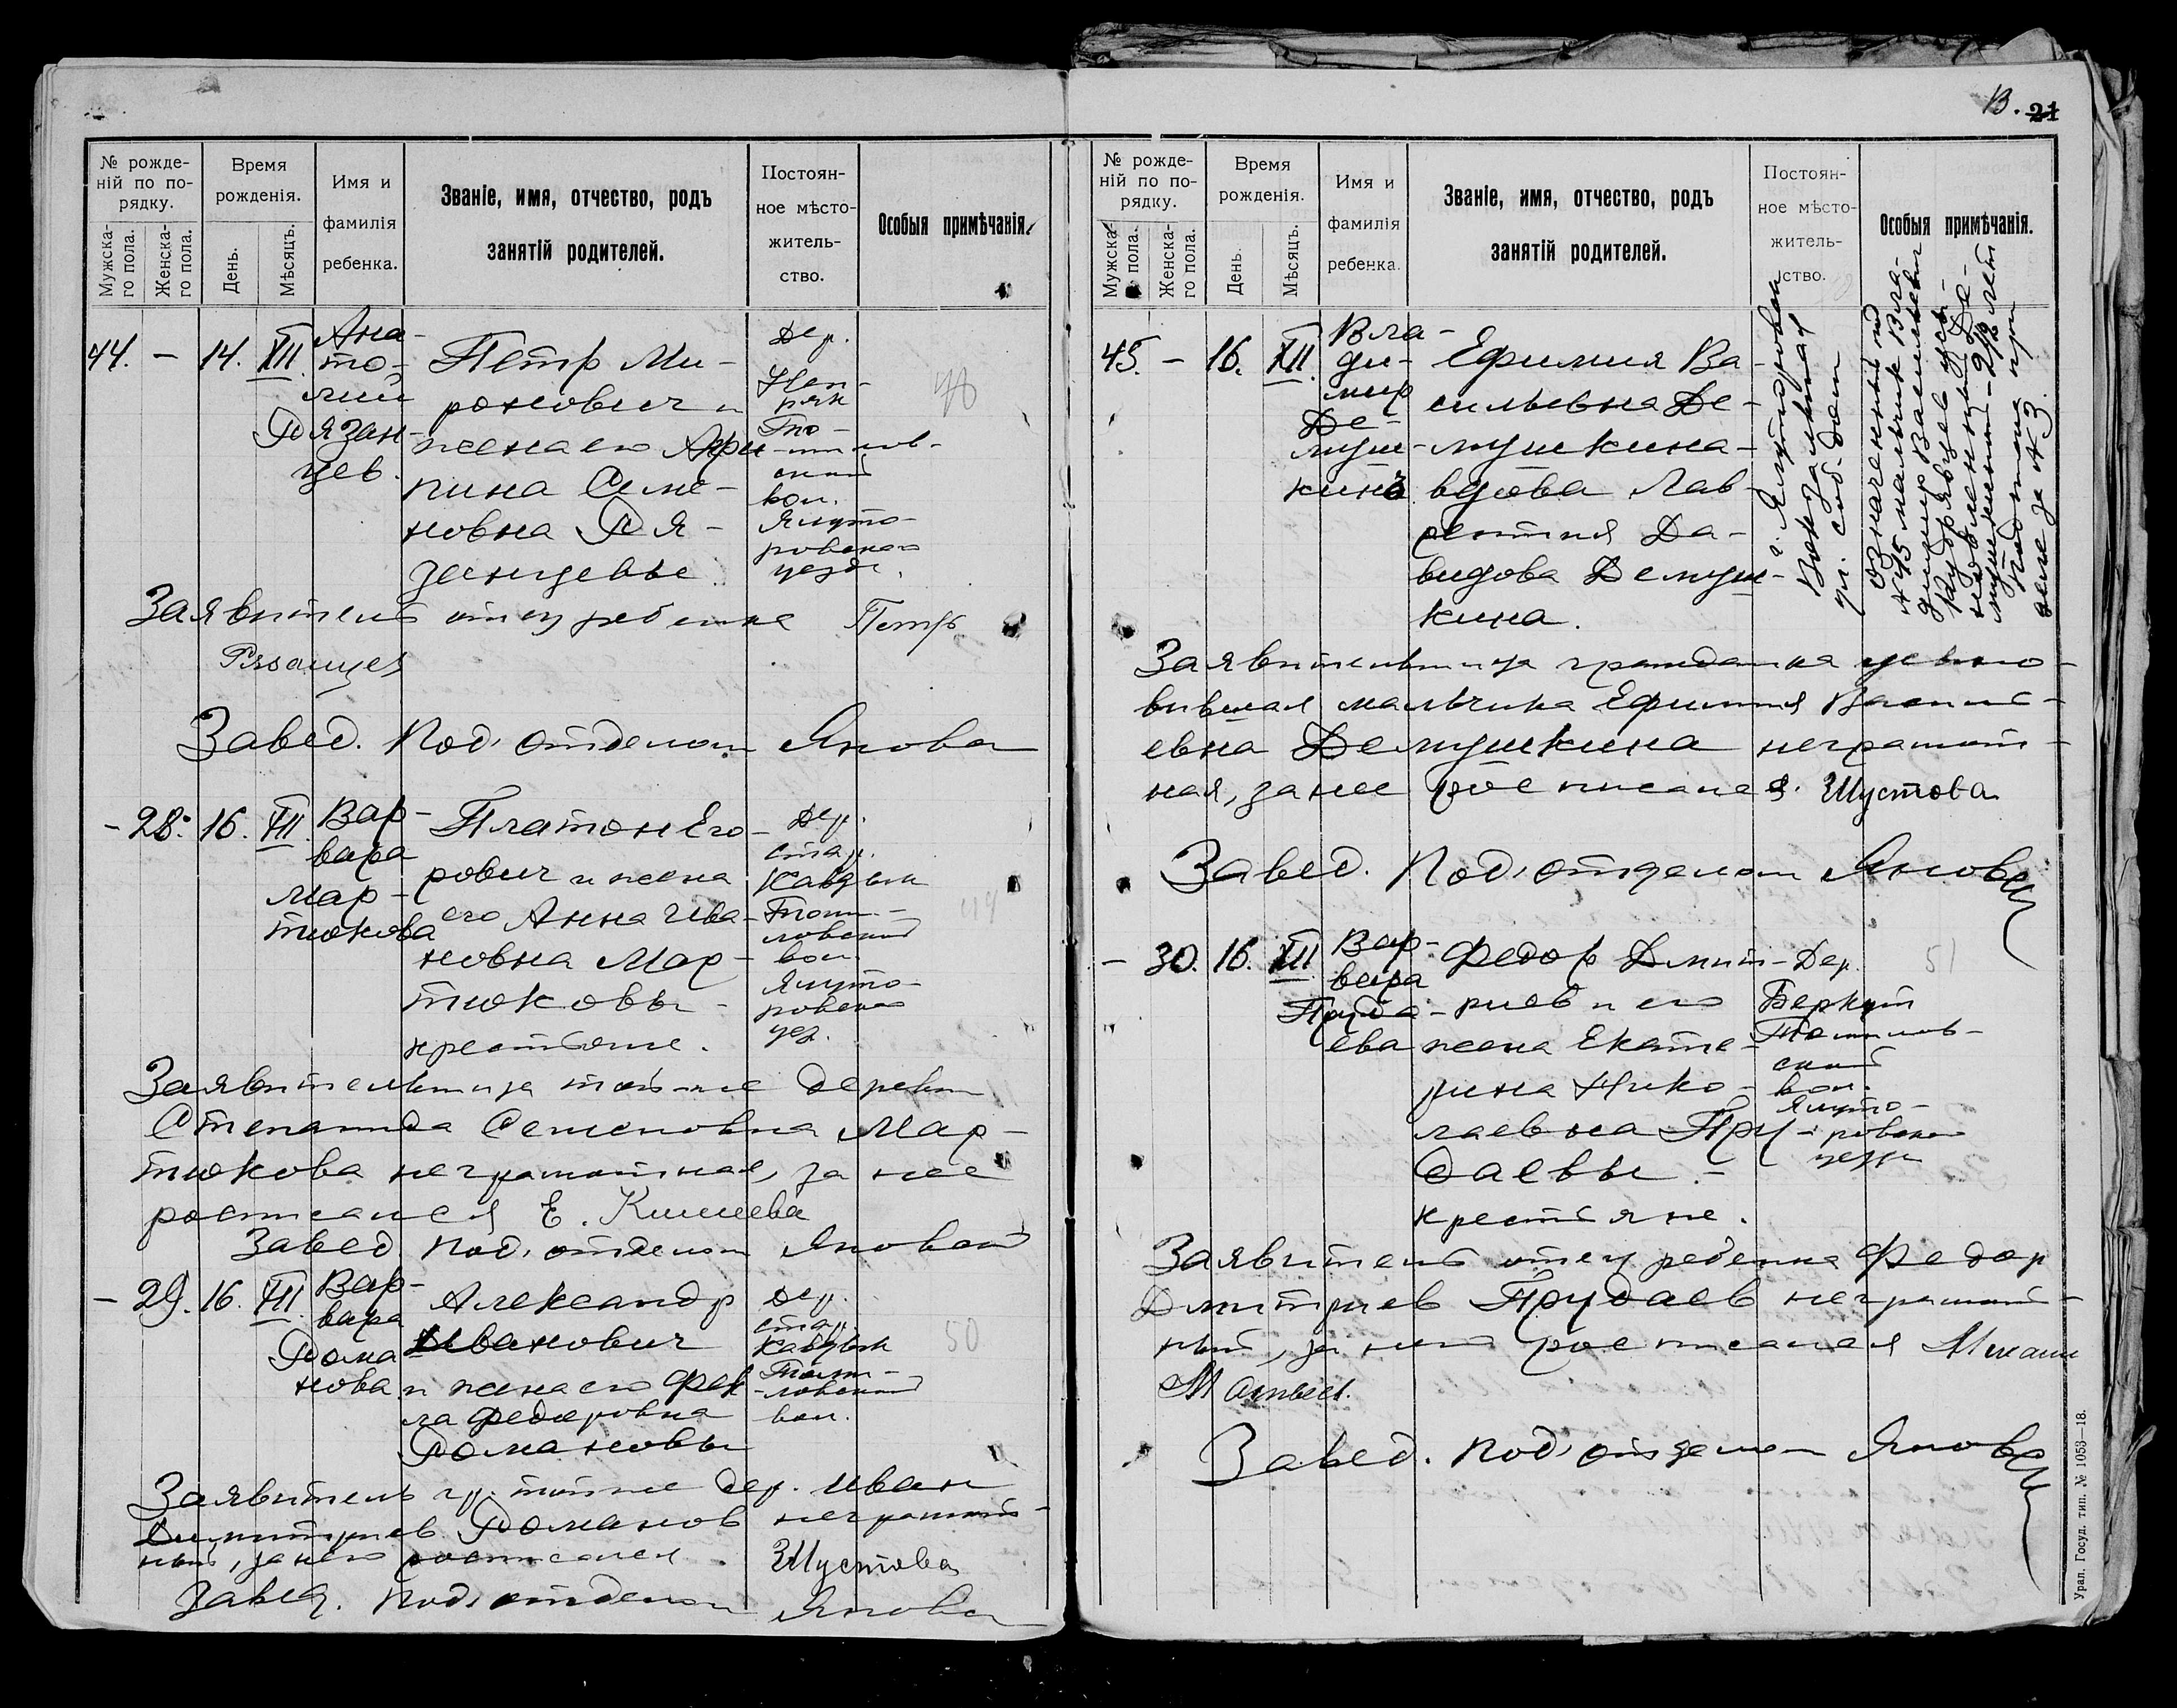 № рожде-
ній по по-
рядку.
Мужска-
го пола.
Женска-
го пола.
Время
рожденія.
День.
Мѣсяцъ.
Имя и
фамилія
ребенка.
Званіе, имя, отчество, родъ
занятій родителей.
Постоян-
ное мѣсто-
житель-
ство.
Особыя примѣчанія.
44. – 14. XII
Ана-
то-
лий
Рязан-
цев.
Петр Ми-
ронович и
жена его Агри-
пина Семе-
новна Ря-
занцевы.
Дер.
То-
милов-
ской
вол.
Ялуто-
ровскаго
уезда.
Заявитель отец ребенка Петр
Рязанцев
Завед. Под'отделом Янова
– 28. 16. XII
Вар-
вара
Мар-
тюкова
Платон Его-
рович и жена
его Анна Ива-
новна Мар-
тюковы –
крестьяне.
Дер.
стар.
Кавдык
Томи-
ловской
вол.
Ялуто-
ровскаго
уез.
Заявительница той-же деревни
Степанида Семеновна Мар-
тюкова неграмотная, за нее
росписался Е.
Завед. Под'отделом
– 29. 16. XII
Вар-
вара
Рома-
нова
Александр
Иванович
и жена его Фек-
ла Федоровна
Романовы
Дер.
стар.
Кавдык
Томи-
ловской
вол.
50
Заявитель гр. той-же дер. Иван
Димитриев Романов неграмот-
ный, за него росписался. Шустова
Завед. Под'отделом Янова
13. 21
№ рожде-
ній по по-
рядку.
Мужска-
го пола.
Женска-
го пола.
Время
рожденія.
День.
Мѣсяцъ.
Имя и
фамилія
ребенка.
Званіе, имя, отчество, родъ
занятій родителей.
Постоян-
ное мѣсто-
житель-
ство.
Особыя примѣчанія.
45. – 16. XII.
Вла-
ди-
мир
Де-
муш-
кин
Ефимия Ва-
сильевна Де-
мушкина –
вдова Лав-
рентия Да-
видова Демуш-
кина.
г. Ялуторовск
Вокзальная
ул. соб. дом
Означенный под
№ 45 мальчик Вла-
димир Васильевич
Кудрявцев усы-
Де-
мушкиной
при
деле за № 3.
Заявительница гражданка усыно-
вившая мальчика Ефимия Василь-
евна Демушкина неграмот-
ная, за нее росписался. Шустова
Завед. Под'отделом Янова
– 30. 16. XII
Вар-
вара
Пруда-
ева
Федор Дмит-
риев и его
жена Екате-
рина Нико-
лаевна Пру-
даевы. –
крестьяне.
Дер.
Беркут
Томилов-
ской
вол.
Ялуто-
ровскаго
уезда
51
Заявитель отец ребенка Федор
Дмитриев Прудаев неграмот-
ный, за него росписался
Матвеев.
Завед. Под'отделом Янова
Урал. Госуд. тип. № 1053—18.